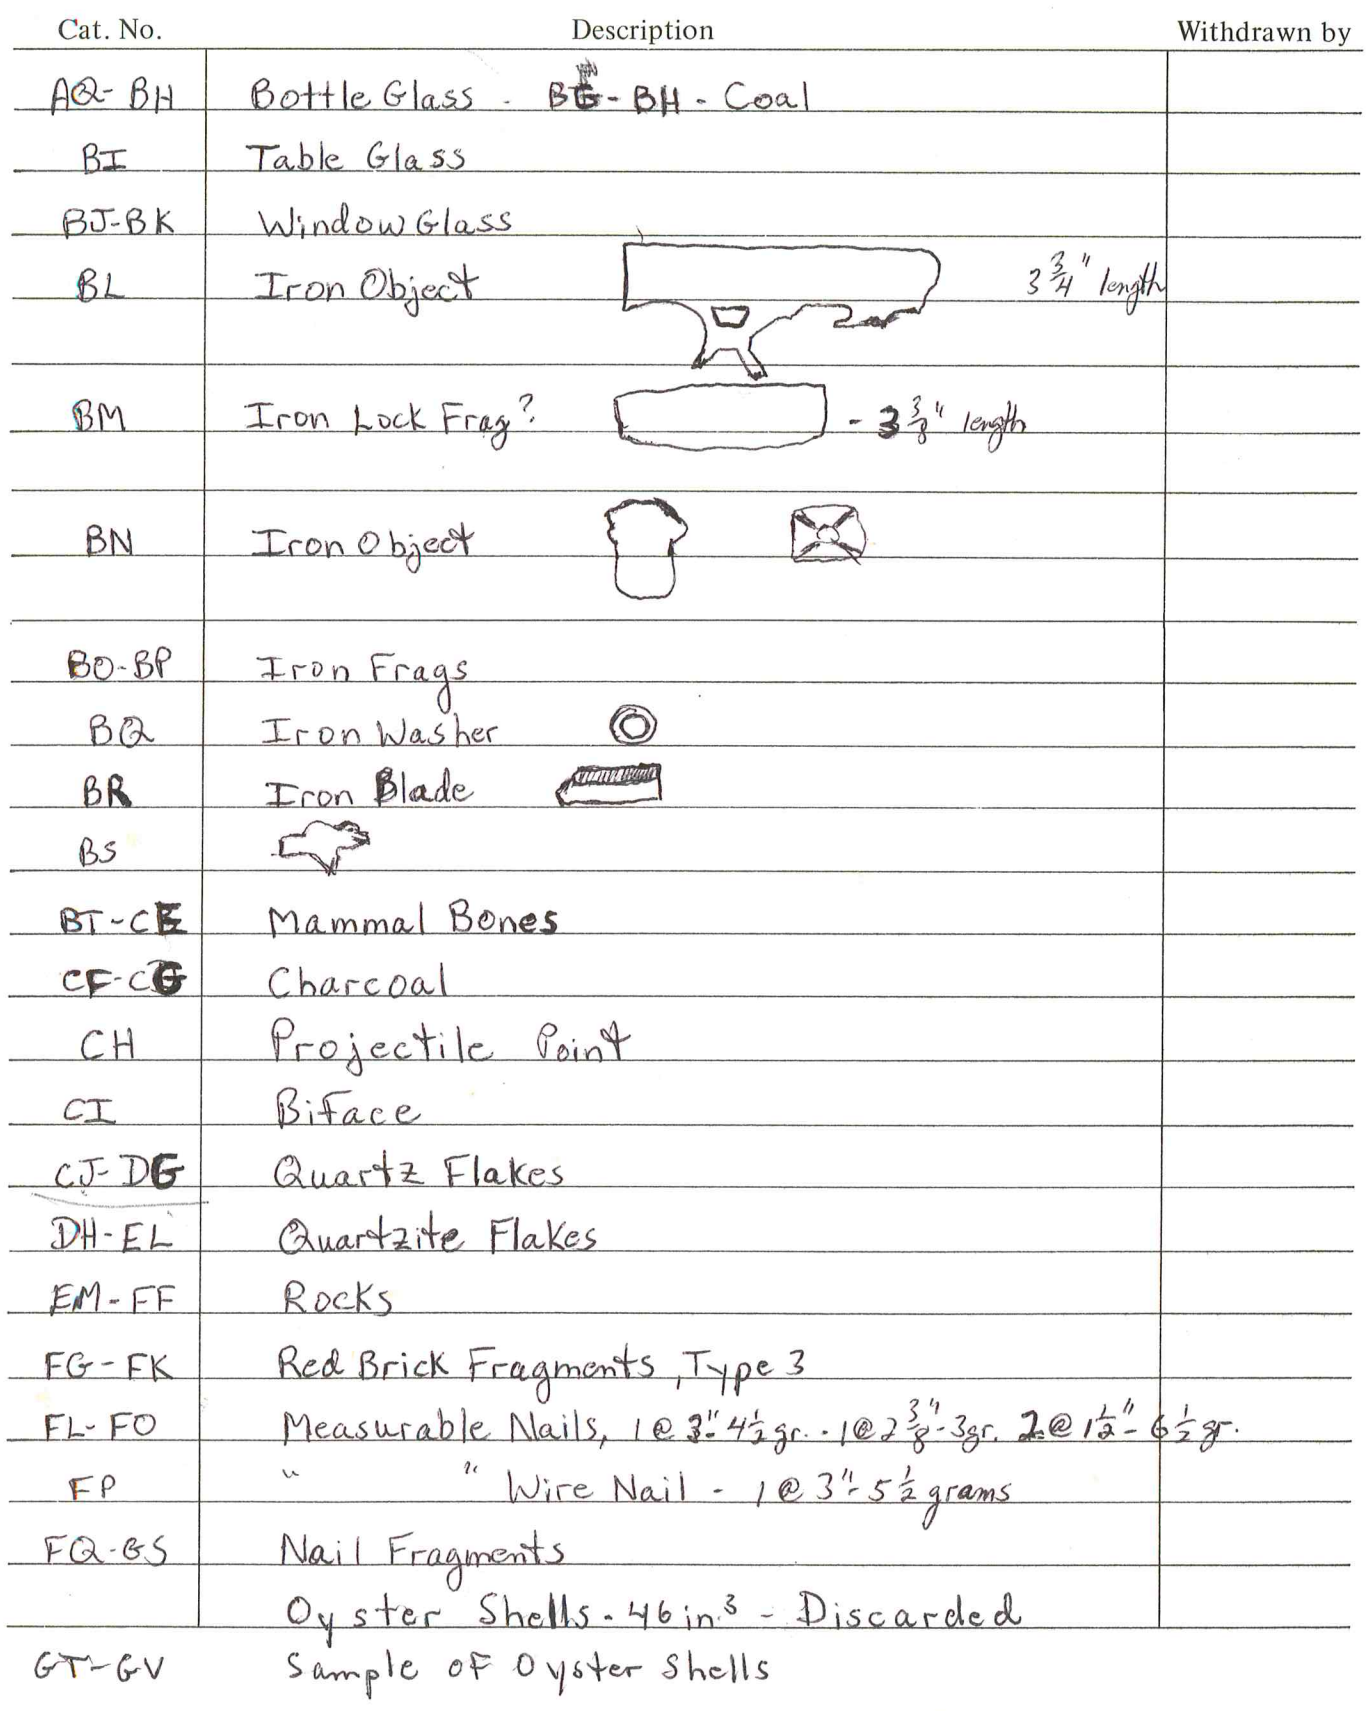 Cat. No. Description Withdrawn by
AQ-BH Bottle Glass - BG-BH - Coal
BI Table Glass
BJ-BK Window Glass
BL Iron Object 3 3/4" length
BM Iron Lock Frag? - 3 3/8" length
BN Iron Object
BO-BP Iron Frags
BQ Iron Washer
BR Iron Blade
BS
BT-CE Mammal Bones
CF-CG Charcoal
CH Projectile Point
CI Biface
CJ-DG Quartz Flakes
DH-EL Quartzite Flakes
EM-FF Rocks
FG-FK Red Brick Fragments, Type 3
FL-FO Measurable Nails, 1 @ 3"- 4 1/2 gr. - 1 @ 2 3/8"- 3 gr. 2 @ 1 1/2"- 6 1/2 gr.
FP " " Wire Nail - 1 @ 3"- 5 1/2 grams
FQ-GS Nail Fragments
Oyster Shells - 46 in.3 - Discarded
GT-GV Sample of Oyster Shells